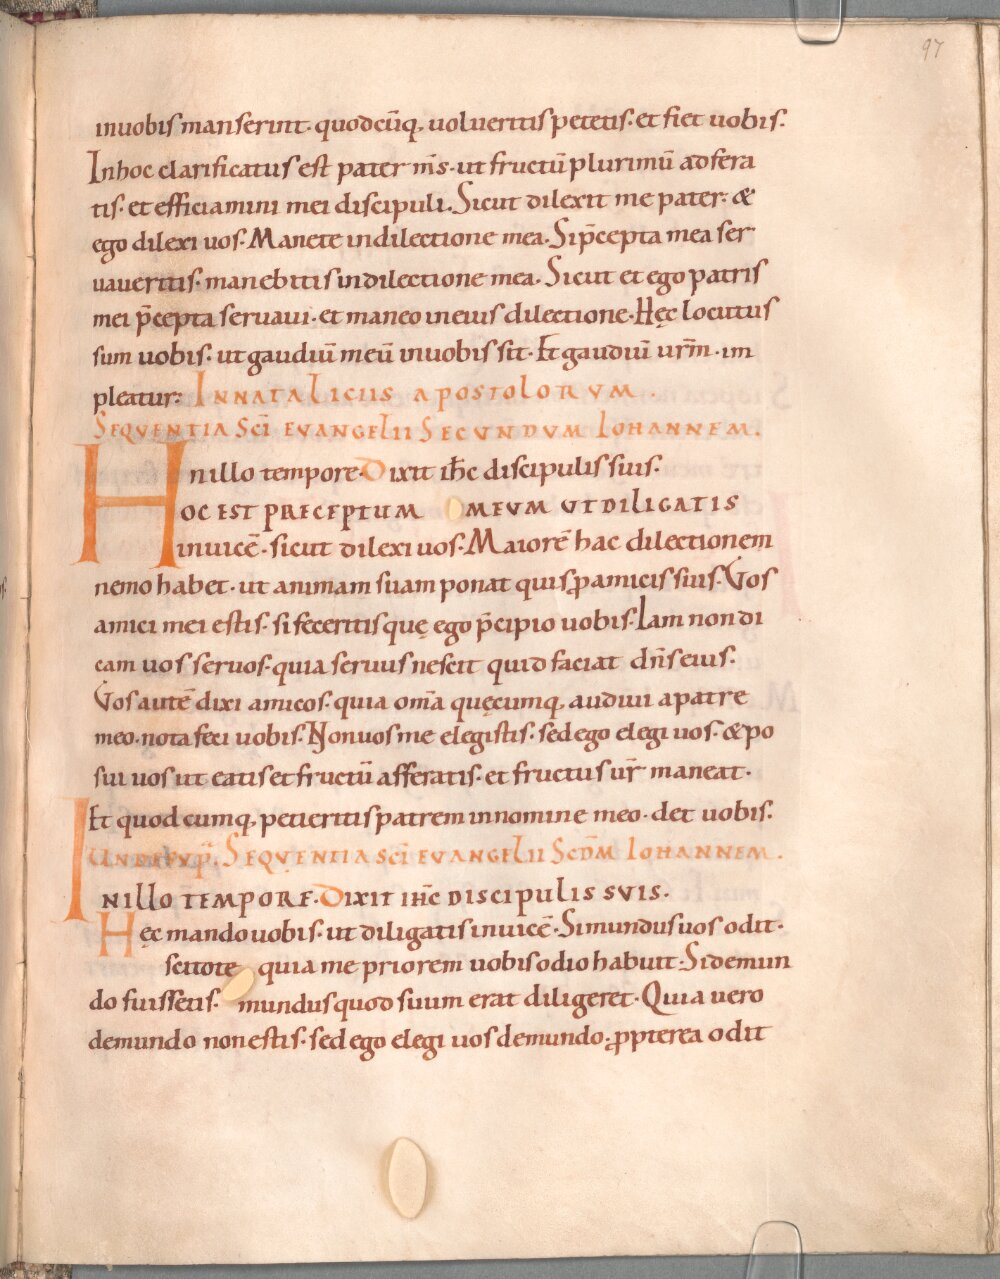 97
inuobis manserint· quodcūq, uolueritis petetis· et fiet uobis·
Inhoc clarificatus est pater m̄s· ut fructū plurimū adfera
tis· et efficiamini mei discipuli. Sicut dilexit me pater· &
ego dilexi uos· Manete indilectione mea· Si p̄cepta mea ser
uaueritis· manebitis indilectione mea· Sicut et ego patris
mei p̄cepta seruaui· et maneo ineius dilectione· Hęc locutus
sum uobis· ut gaudiū meū inuobis sit· Et gaudiū ur̄m· im
pleatur· INNATALICIIS APOSTOLORVM.
SEQVENTIA SC̄I EVANGELII SECVNDVM IOHANNEM.
Inillo tempore· Dixit ih̄c discipulis suis·
HOC EST PRECEPTUM MEVM UT DILIGATIS
inuicē· sicut dilexi uos· Maiorē hac dilectionem
nemo habet· ut animam suam ponat quis ꝓ amicis suis· Vos
amici mei estis· si feceritis quę ego p̄cipio uobis· Iam non di
cam uos seruos· quia seruus nescit quid faciat dn̄s eius·
Vos autē dixi amicos· quia om̄a quęcumq, audiui apatre
meo· nota feci uobis· Non uos me elegistis· sed ego elegi uos· & po
sui uos ut eatis et fructū afferatis· et fructus ur̄ maneat·
Et quodcumq, petieritis patrem innomine meo· det uobis·
SEQVENTIA SC̄I EVANGELII SCD̄M IOHANNEM.
INILLO TEMPORE· DIXIT IH̄C DISCIPULIS SVIS·
Hęc mando uobis· ut diligatis inuicē· Si mundus uos odit·
scitote quia me priorem uobis odio habuit· Si demun
do fuissetis· mundus quod suum erat diligeret· Quia uero
demundo non estis· sed ego elegi uos demundo· ꝓpterea odit